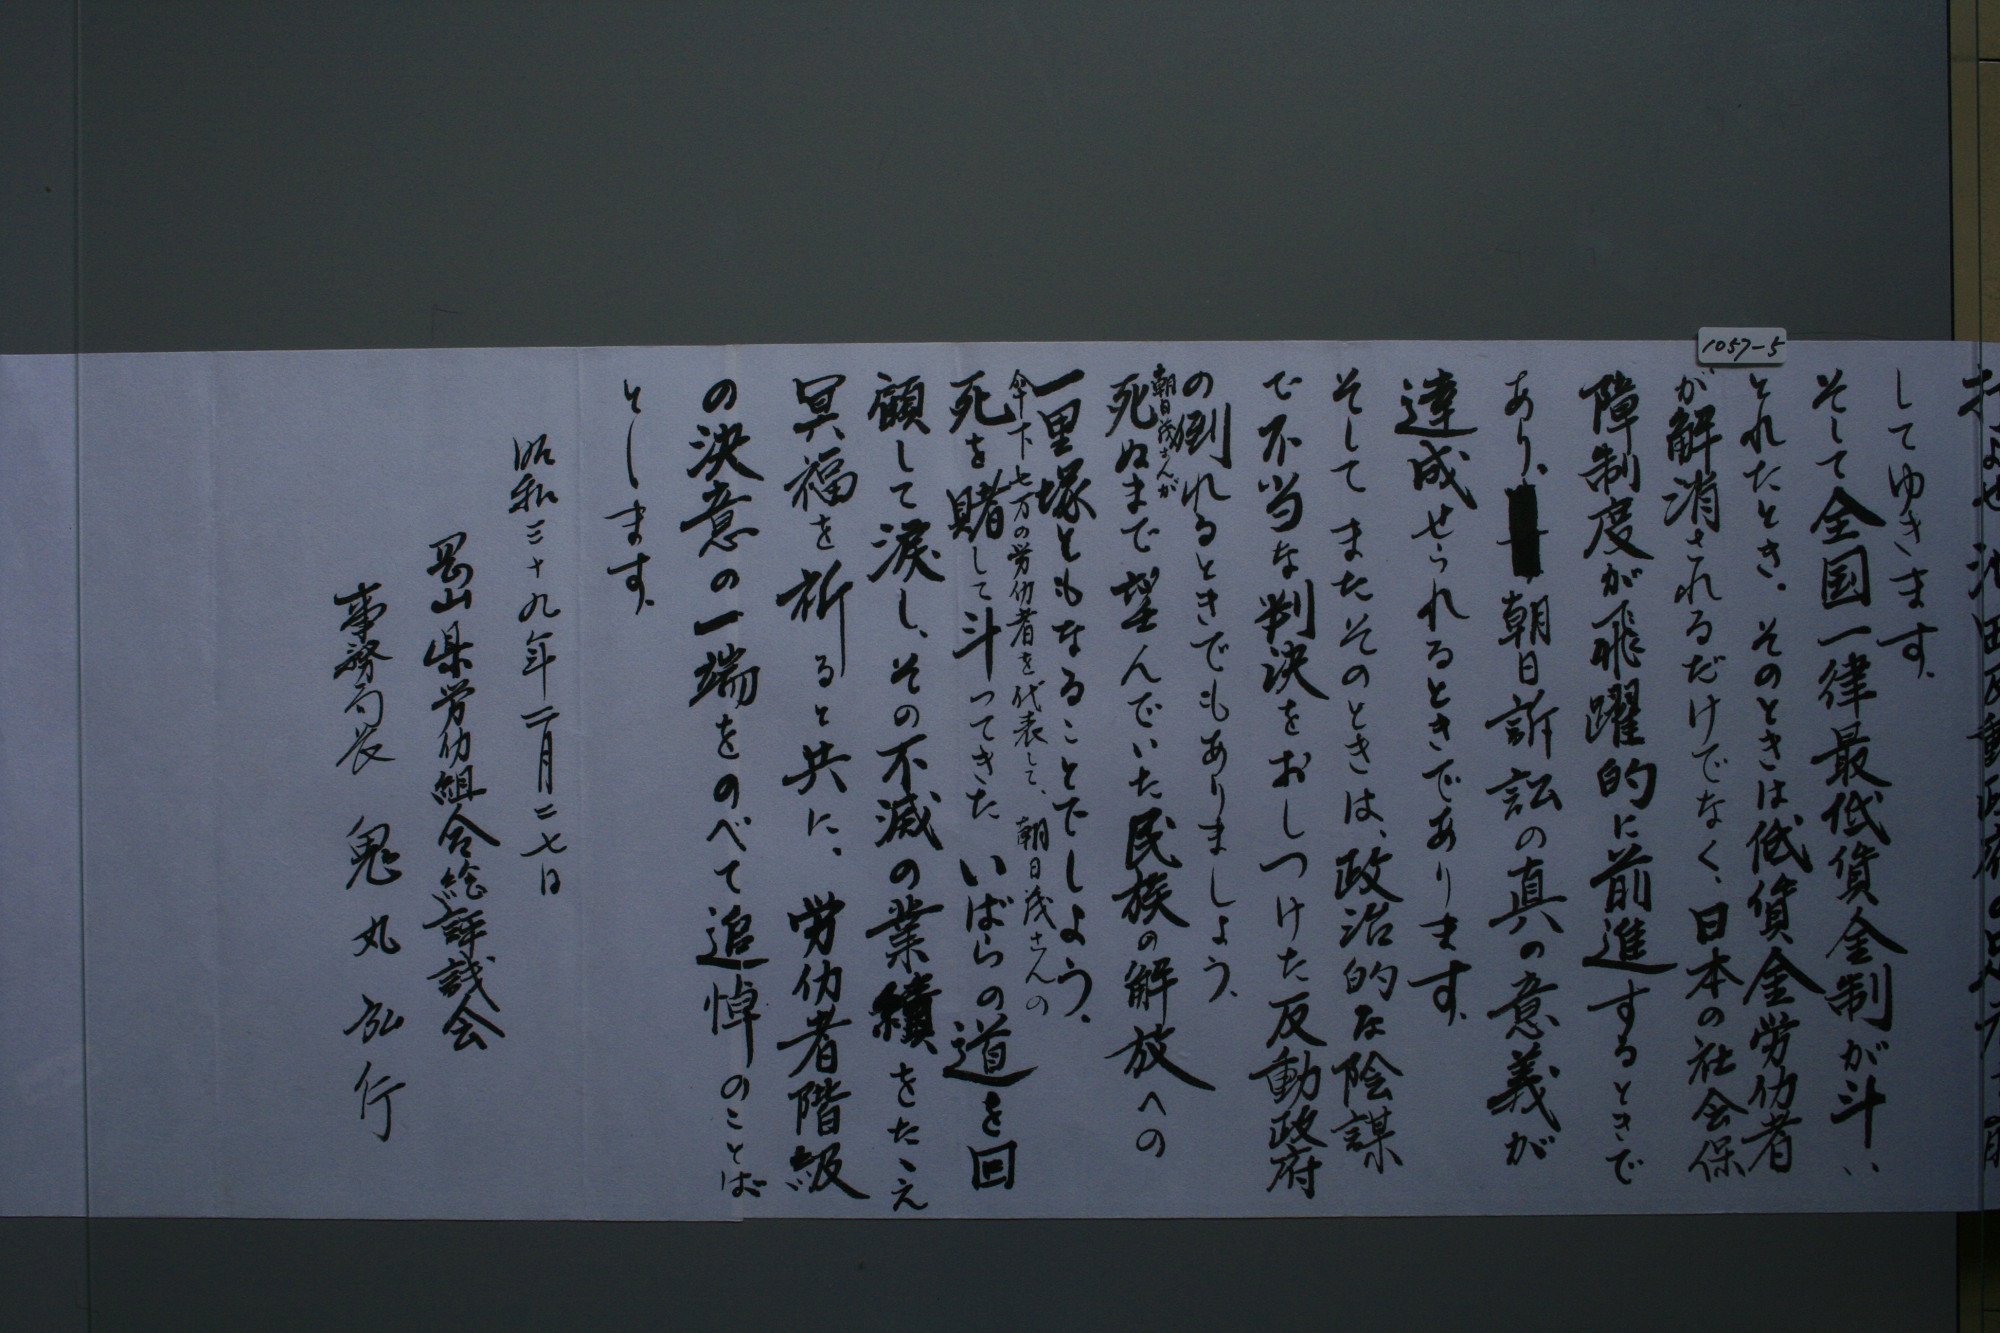 1057-5
してゆきます。
そして全国一律最低賃金制が斗い
とれたとき。そのときは低賃金労仂者
が解消されるだけでなく、日本の社会保
障制度が飛躍的に前進するときで
あり、朝日訴訟の真の意義が
達成せられるときであります。
そしてまたそのときは、政治的な陰謀
で不当な判決をおしつけた反動政府
の倒れるときでもありましょう、
朝日茂さんが
死ぬまで望んでいた民族の解放への
一里塚ともなることでしよう、
傘下七万の労仂者を代表して、朝日茂さんの
死を賭して斗ってきた いばらの道を回
顧して涙し、その不滅の業績をたたえ
冥福を祈ると共に、労仂者階級
の決意の一端をのべて追悼のことば
とします。
昭和三十九年二月二七日
岡山県労仂組合総評議会
事務局長 鬼丸弘行